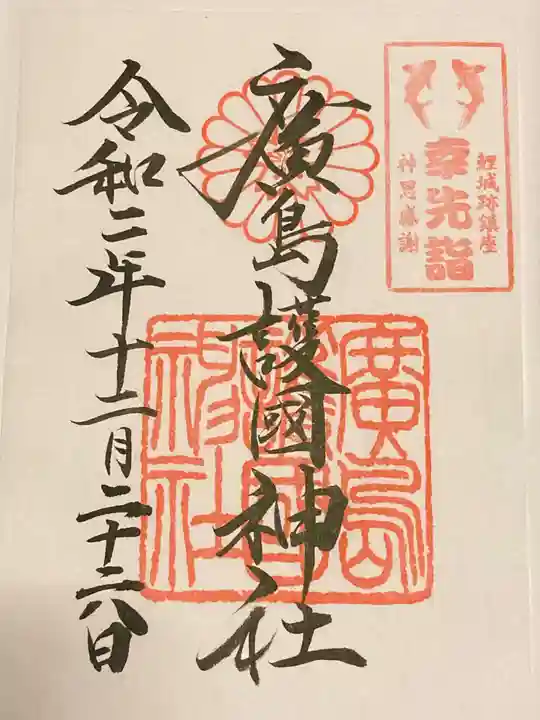 鯉城跡鎮座
幸先詣
神恩感謝
廣島護國神社
廣島護國神社
令和二年十二月二十六日